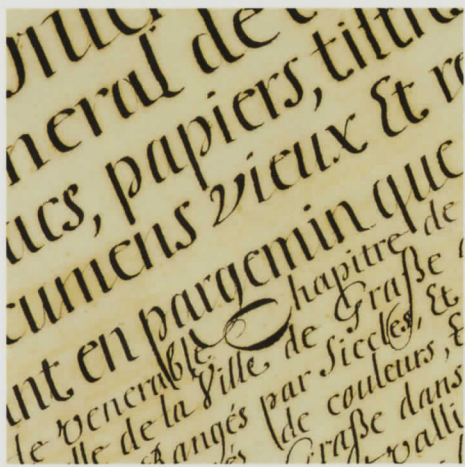 neral de
ucs, papiers, tiltr
cumens vieux Et re
ant en pargemin que
le venerable Chapitre de
lle de la Ville de Graße
Rangés par Siecles, Et
de couleurs, E
Graße dans
valli